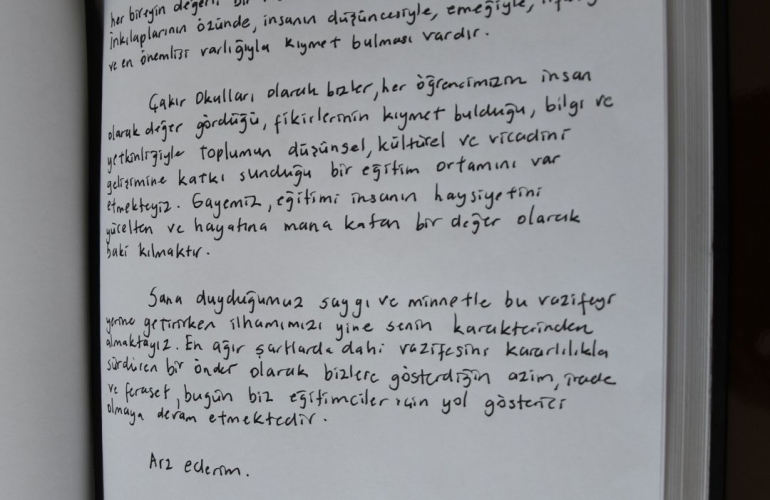 her bireyin değeri bir
inkılaplarının özünde, insanın düşüncesiyle, emeğiyle,
ve en önemlisi varlığıyla kıymet bulması vardır.
Çakır Okulları olarak bizler, her öğrencimizin insan
olarak değer gördüğü, fikirlerinin kıymet bulduğu, bilgi ve
yetkinliğiyle toplumun düşünsel, kültürel ve vicadini
gelişimine katkı sunduğu bir eğitim ortamını var
etmekteyiz. Gayemiz, eğitimi insanın haysiyetini
yücelten ve hayatına mana katan bir değer olarak
baki kılmaktır.
Sana duyduğumuz saygı ve minnetle bu vazifeyi
yerine getirirken ilhamımızı yine senin karakterinden
almaktayız. En ağır şartlarda dahi vazifesini kararlılıkla
sürdüren bir önder olarak bizlere gösterdiğin azim, irade
ve feraset, bugün biz eğitimciler için yol gösterici
olmaya devam etmektedir.
Arz ederim.